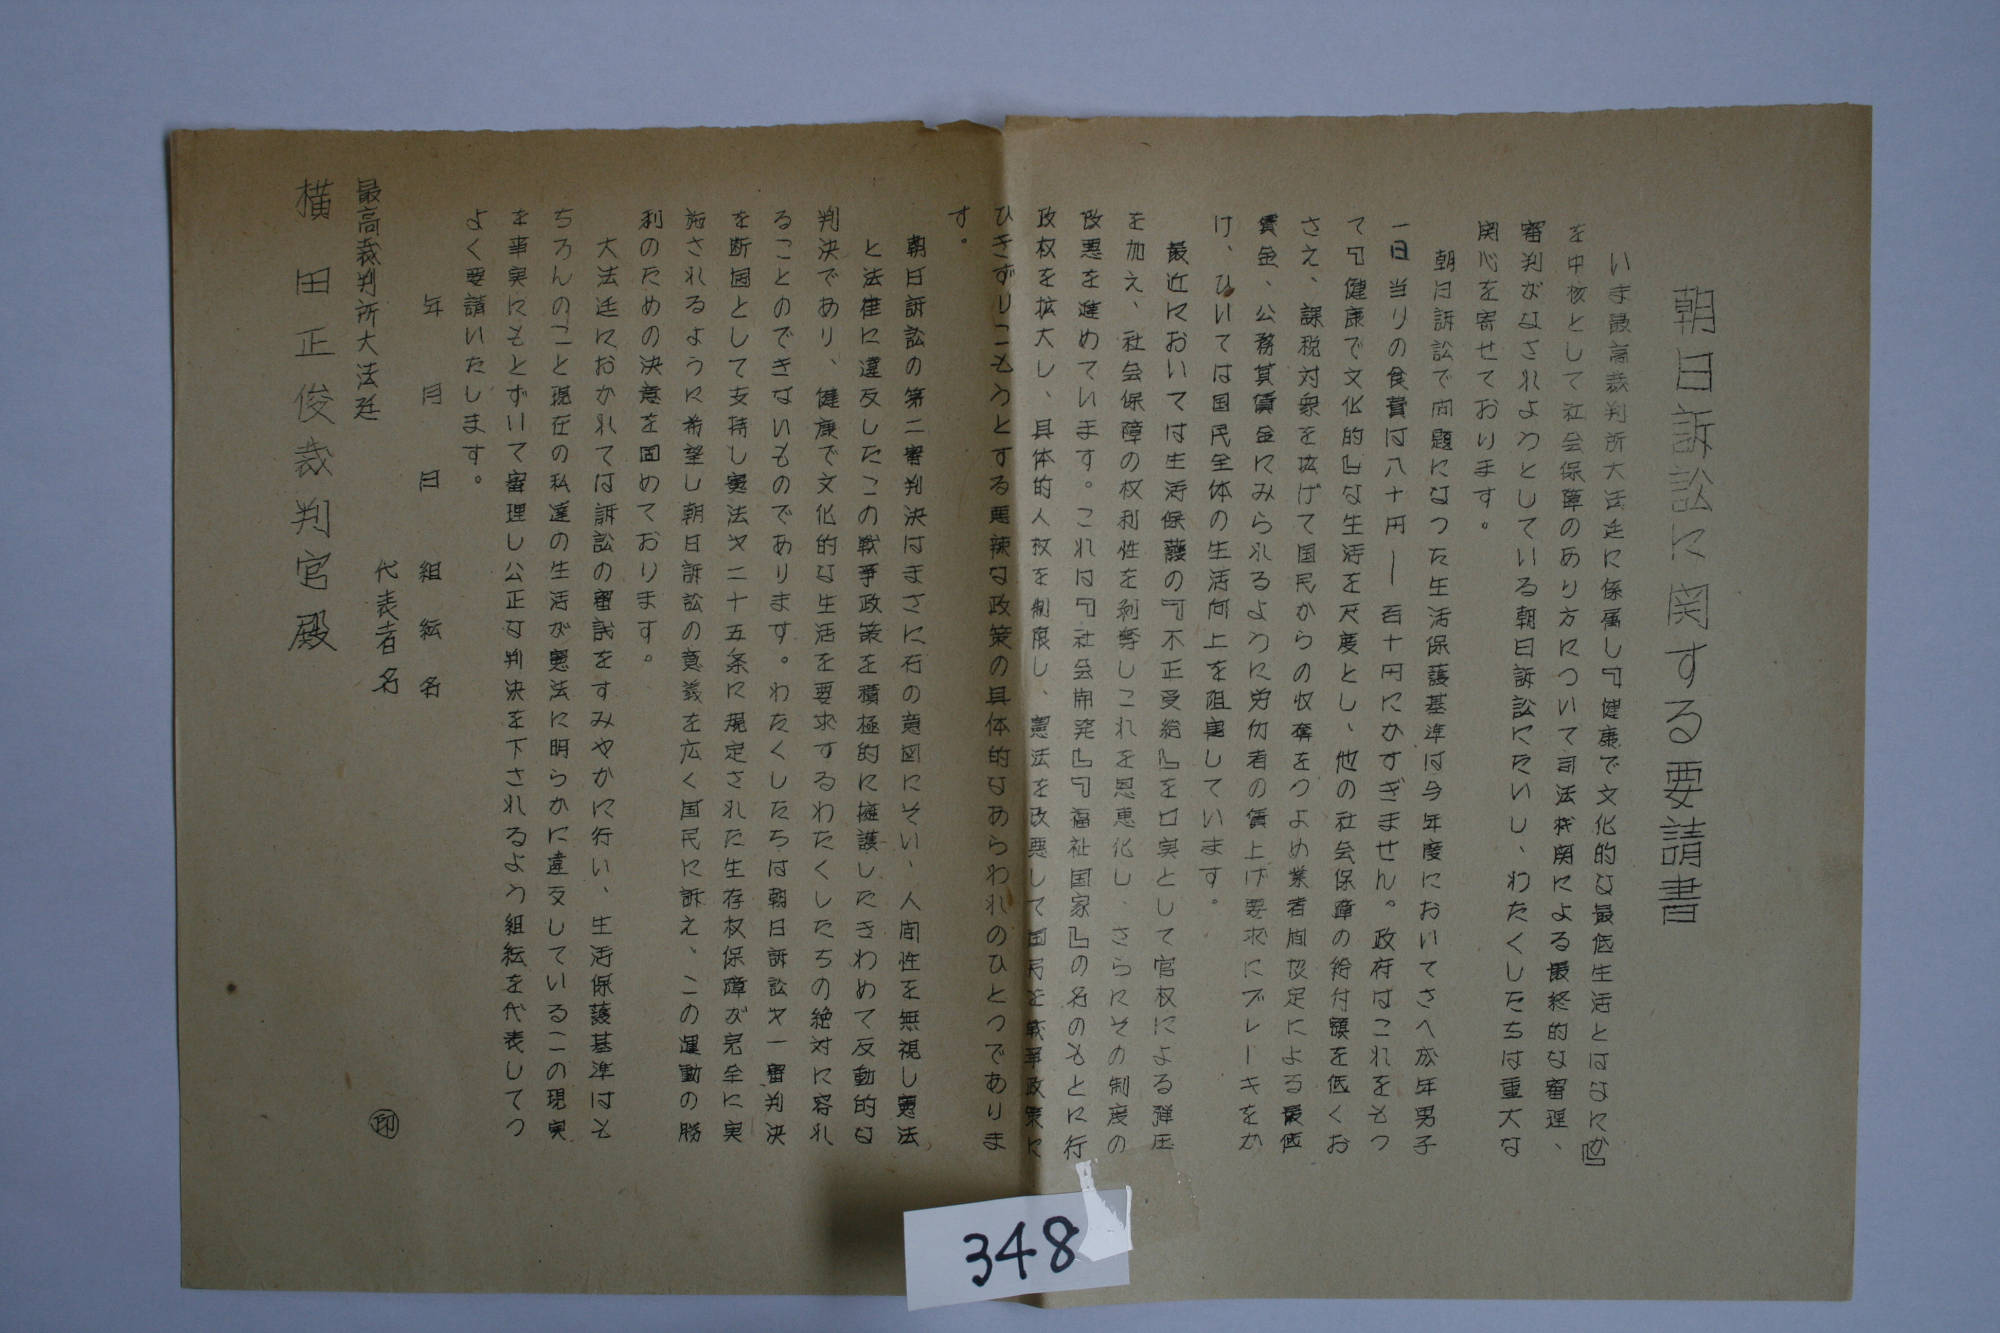 朝日訴訟に関する要請書
いま最高裁判所大法廷に係属し『健康で文化的な最低生活とはなにか』
を中核として社会保障のあり方について司法機関による最終的な審理、
審判がなされようとしている朝日訴訟にたいし、わたくしたちは重大な
関心を寄せております。
朝日訴訟で問題になつた生活保護基準は今年度においてさへ成年男子
一日当りの食費は八十円―百十円にかすぎません。政府はこれをもつ
て『健康で文化的』な生活を尺度とし、他の社会保障の給付額を低くお
さえ、課税対象を拡げて国民からの収奪をつよめ業者間協定による最低
賃金、公務員賃金にみられるように労仂者の賃上げ要求にブレーキをか
け、ひいては国民全体の生活向上を阻害しています。
最近においては生活保護の『不正受給』を口実として官权による弾圧
を加え、社会保障の权利性を剥奪しこれを恩恵化し、さらにその制度の
改悪を進めています。これは『社会開発』『福祉国家』の名のもとに行
政权を拡大し、具体的人权を制限し、憲法を改悪して国民を戦争政策に
ひきずりこもうとする悪辣な政策の具体的なあらわれのひとつでありま
す。
朝日訴訟の第二審判決はまさに右の意図にそい、人間性を無視し憲法
と法律に違反したこの戦争政策を積極的に擁護したきわめて反動的な
判決であり、健康で文化的な生活を要求するわたくしたちの絶対に容れ
ることのできないものであります。わたくしたちは朝日訴訟㐧一審判決
を断固として支持し憲法㐧二十五条に規定された生存权保障が完全に実
施されるように希望し朝日訴訟の意義を広く国民に訴え、この運動の勝
利のための決意を固めております。
大法廷におかれては訴訟の審議をすみやかに行い、生活保護基準はも
ちろんのこと現在の私達の生活が憲法に明らかに違反しているこの現実
を事実にもとずいて審理し公正な判決を下されるよう組紜を代表してつ
よく要請いたします。
年　月　日　組紜名
代表者名　㊞
最高裁判所大法廷
横田正俊裁判官殿
348